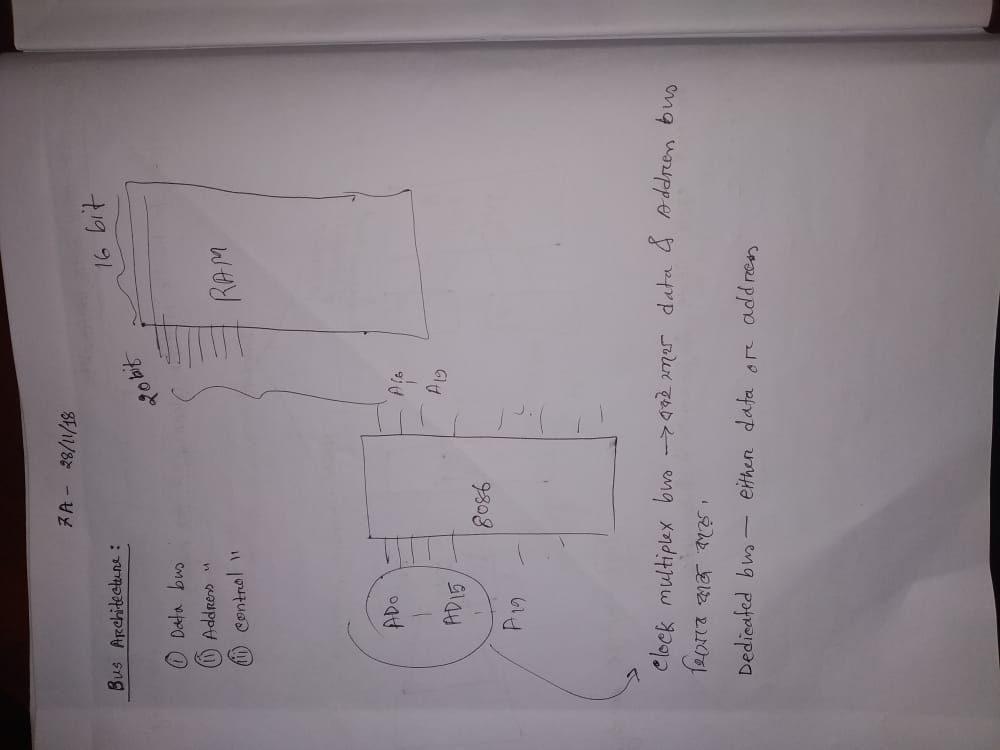 7A - 28/11/18
Bus Architecture:
(i) Data bus
(ii) Address "
(iii) control "
20 bit
16 bit
RAM
AD0
AD15
A19
8086
A16
A19
Clock multiplex bus → একই সময় data & Address bus
হিসেবে কাজ করে।
Dedicated bus — either data or address